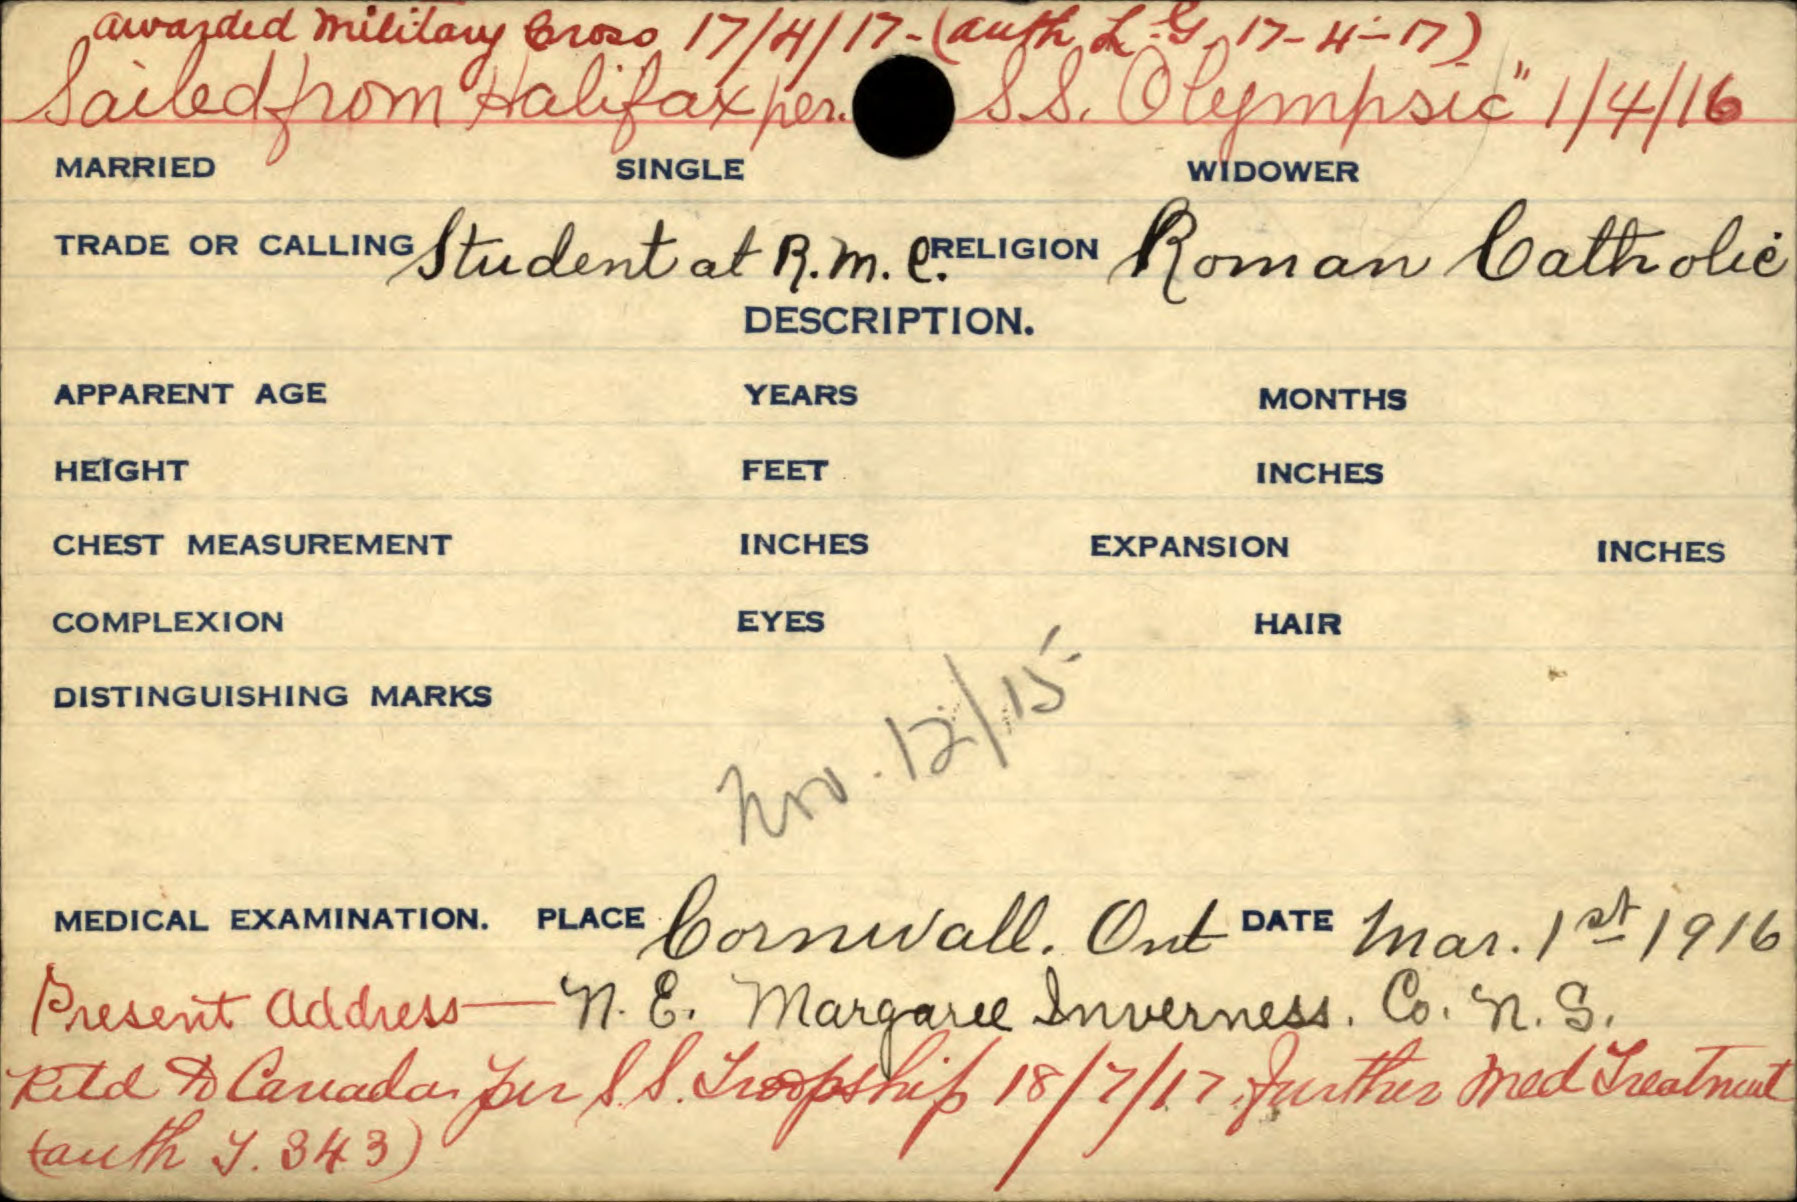 awarded Military Cross 17/4/17 - (auth L.G. 17-4-17)
Sailed from Halifax per. S.S. Olympsic" 1/4/16
MARRIED SINGLE WIDOWER
TRADE OR CALLING Student at R.M.C. RELIGION Roman Catholic
DESCRIPTION.
APPARENT AGE YEARS MONTHS
HEIGHT FEET INCHES
CHEST MEASUREMENT INCHES EXPANSION INCHES
COMPLEXION EYES HAIR
DISTINGUISHING MARKS
Nov. 12/15
MEDICAL EXAMINATION. PLACE Cornwall. Ont DATE Mar. 1st 1916
Present Address — N. E. Margaree Inverness. Co. N. S.
Retd to Canada per S.S. Troopship 18/7/17 further Med Treatment
(auth Y. 343)